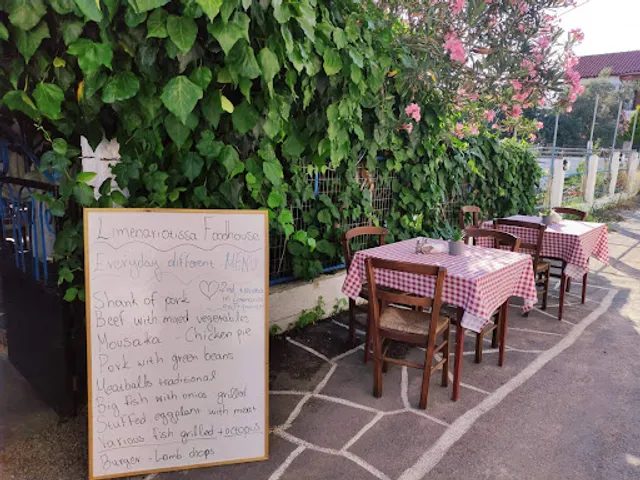 Limenariotissa Foodhouse
Everyday different MENU
Shank of pork
Beef with mixed vegetables
Mousaka - Chicken pie
Pork with green beans
Meatballs traditional
Big fish with onios grilled
Stuffed eggplant with meat
Various fish grilled + octopus
Burger - Lamb chops